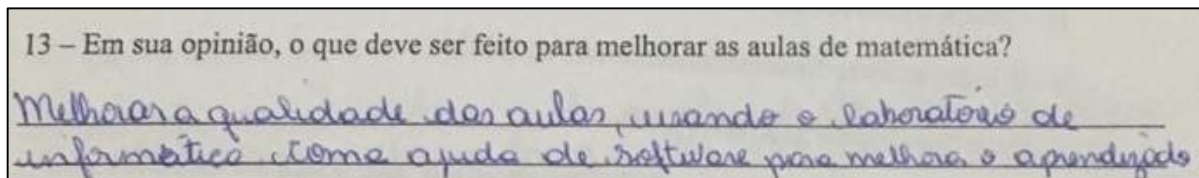 13 – Em sua opinião, o que deve ser feito para melhorar as aulas de matemática?
Melhorar a qualidade das aulas, usando o laboratório de
informática, como ajuda de software para melhora o aprendizado